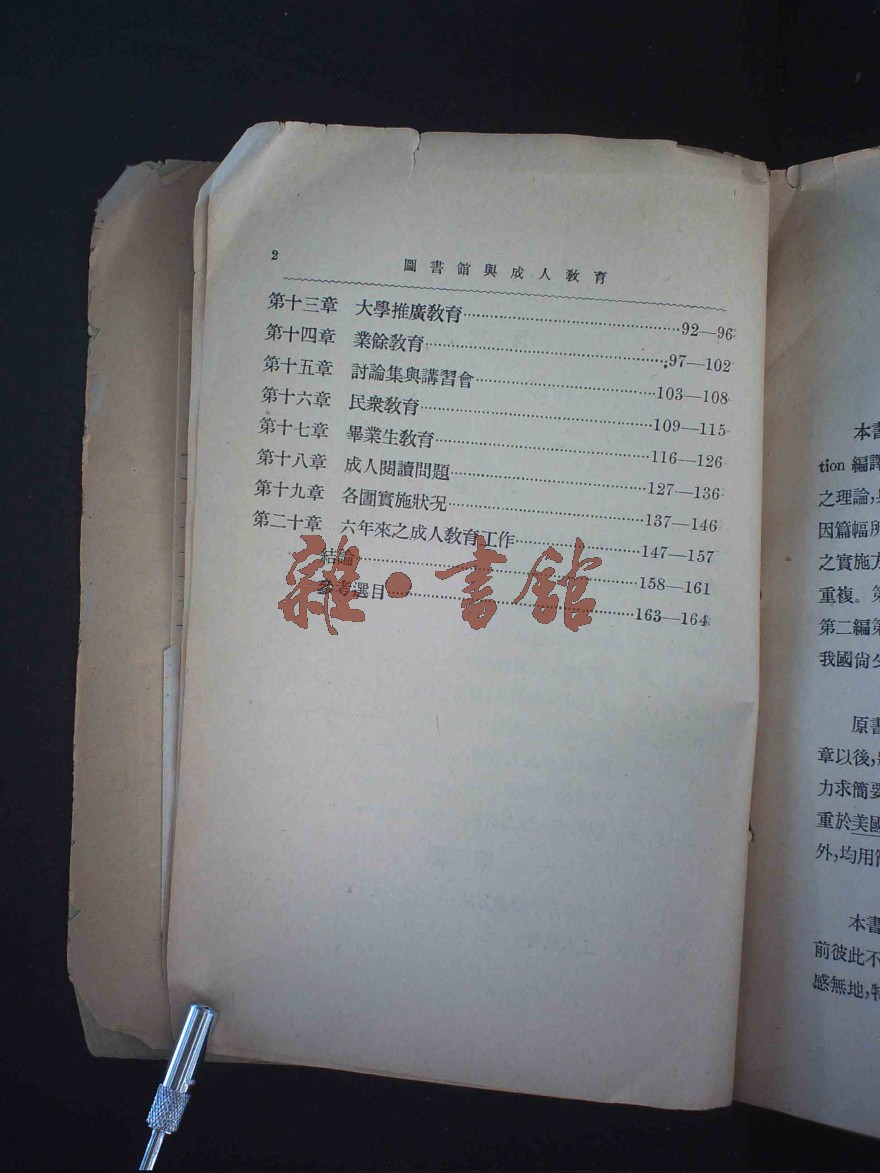 2
圖書館與成人教育
第十三章 大學推廣教育……92—96
第十四章 業餘教育……97—102
第十五章 討論集與講習會……103—108
第十六章 民衆教育……109—115
第十七章 畢業生教育……116—126
第十八章 成人閱讀問題……127—136
第十九章 各國實施狀况……137—146
第二十章 六年來之成人教育工作……147—157
結論……158—161
參考選目……163—164
雜·書館
本書
tion 編譯
之理論,
因篇幅所
之實施方
重複。第
第二編第
我國尙
原書
章以後,
力求簡要
重於美國
外,均用
本書
前彼此不
感無地,特